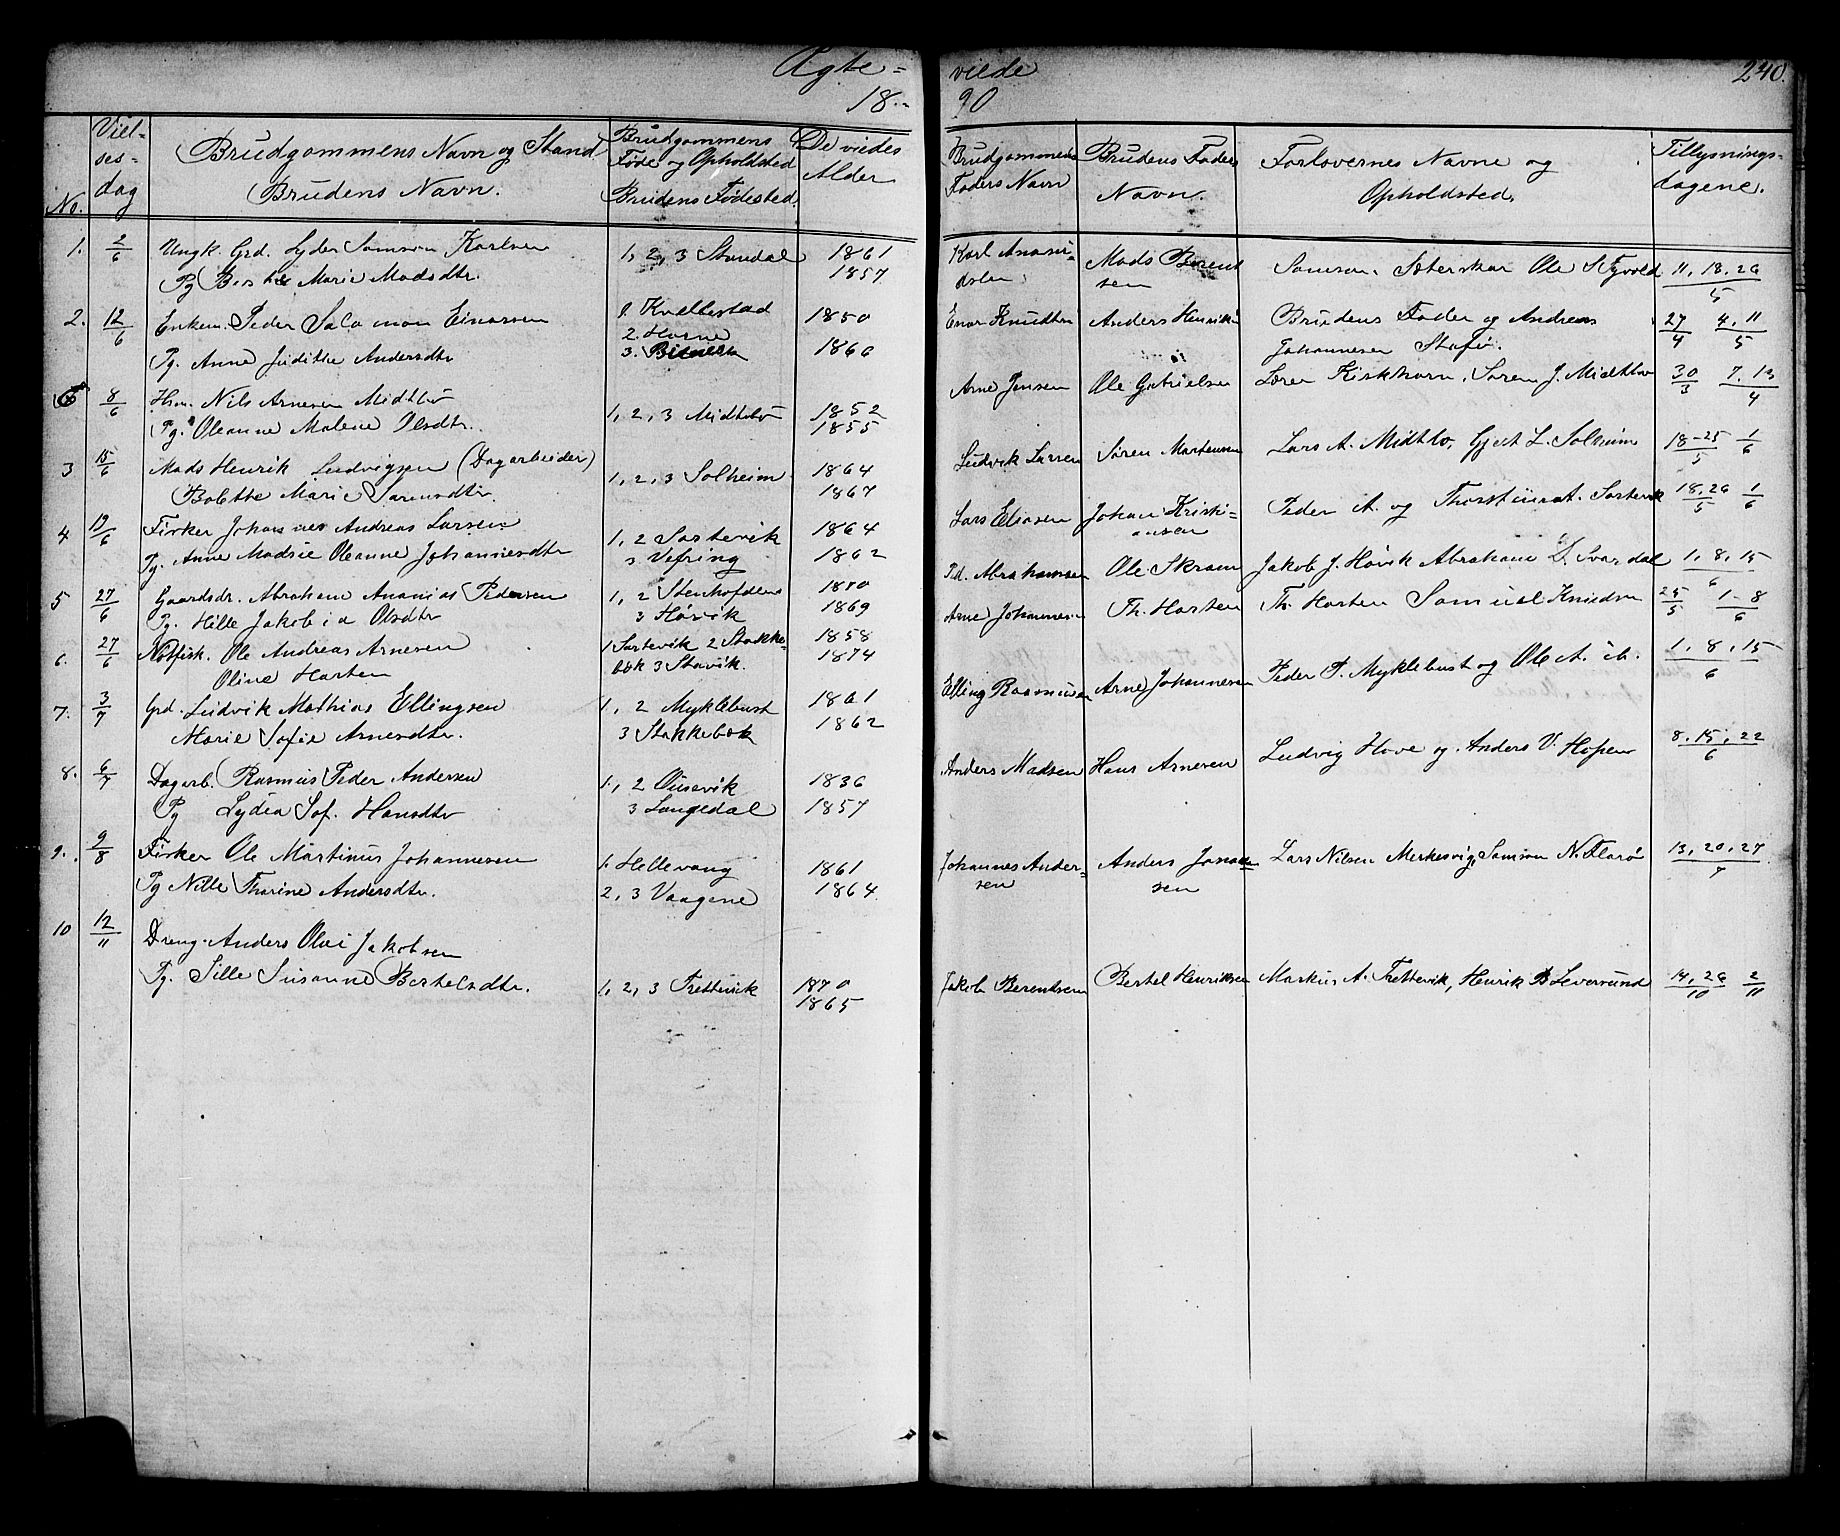 Ægte=
18--
No.
Viel-
ses-
dag
Brudgommens Navn og Stand
Brudens Navn.
Brudgommens
Føde og Opholdsted
Brudens Fødested.
De viedes
Alder
1. 2/6 Ungk. Grd. Lyder Samson Karlsen 1, 2, 3 Standal 1861
Pg Marie Madsdtr. 1857
2. 12/6 Enkem. Peder Salamon Einarsen 1. Kvellestad 1850
2. Horne
Pg. Anne Judithe Andersdtr 3. 1866
8/6 Hsm. Nils Arnesen Midtbø
1, 2, 3 Midtbø 1852
Pg. Oleanne Malene Olsdtr. 1855
3 15/6 Mads Henrik Ludvigsen (Dagarbeider) 1, 2, 3 Solheim 1864
Bolette Marie Sørensdtr. 1867
4 19/6 Fisker Johannes Andreas Larsen 1, 2 Sørtevik 1864
Pg. Anne Madsie Oleanne Johannesdtr 3 Vefring 1862
5 27/6 Gaardsdr. Abraham Ananias Pedersen 1, 2 Stenhofden 1870
Pg. Hille Jakobia Olsdtr 3 Høivik 1869
6. 27/6 Notfisk. Ole Andreas Arnesen 1 Sørtevik 2 Stokke- 1858
Oline Harten bøk 3 Stavik. 1874
7. 3/7 Grd. Ludvik Mathias Ellingsen 1, 2 Myklebust 1861
Marie Sofie Arnesdtr. 3 Stokkebøk 1862
8. 6/7 Dagarb. Rasmus Peder Andersen 1, 2 Ousevik 1836
Pg Lydia Sof. Hansdtr 3 Langedal 1857
9. 9/8 Fisker Ole Martinus Johannesen 1. Hellevang 1861
Pg Nille Tharine Andersdtr. 2, 3 Vaagene 1864.
10 12/11 Dreng. Anders Olai Jakobsen
Pg. Sille Susanne Bertelsdtr. 1, 2, 3 Trettevik 1870
1865
viede
90
240.
Brudgommens
Faders Navn
Brudens Faders
Navn.
Forlovernes Navne og
Opholdsted.
Tillysnings-
dagene.
Karl Anani-
Mads Berent
sen
Samson Sæterskar Ole S. Tyvold 11, 18, 26/5
Enar Knudsen Anders Henrik Brudens Fader og Andreas 27/4 4, 11/5
Johannesen Stafø.
Arne Jensen Ole Gabrielsen Lærer Kirkhorn, Søren J. Midtbø 30/3 7, 13/4
Ludvik Larsen Søren Mortensen Lars A. Midtbø, Gjert L. Solheim 18-25/5 1/6
Lars Eliasen Johan Kristi-
ansen Peder A. og Thorstein A. Sørtevik 18, 26/5 1/6
Pd. Abrahamsen Ole Skram Jakob J. Høivik Abraham D. Svardal 1, 8, 15/6
Arne Johannesen Th. Harten Th. Harten Samuel Knudsen 25/5 1-8/6
Elling Rasmussen Arne Johannesen Peder P. Myklebust og Ole A. ib. 1, 8, 15/6
Anders Madsen Hans Arnesen Ludvig Hove og Anders V. Hopen 8, 15, 22/6
Johannes Ander-
sen Anders Jonas-
sen Lars Nilsen Merkesvig, Samson N. Florø 13, 20, 27/7
Jakob Berentsen Bertel Henriksen Markus A. Trettevik, Henrik B. Leversund 14, 26/10 2/11